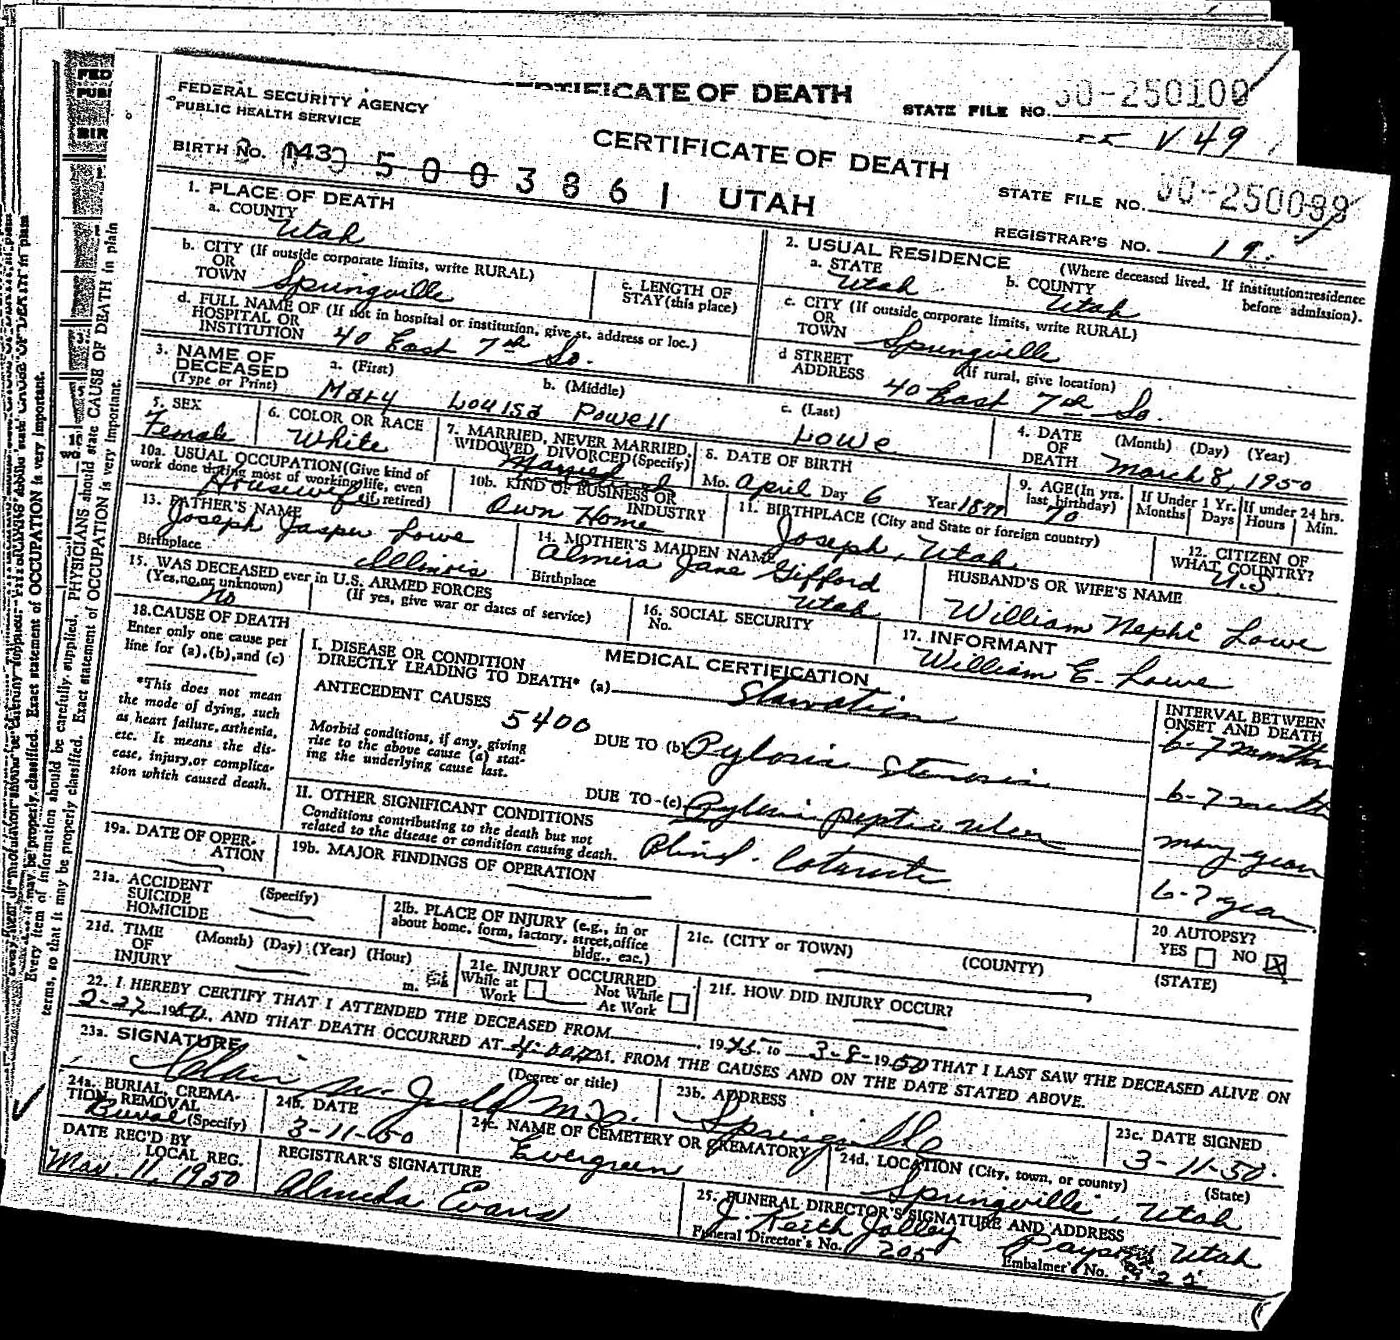 CERTIFICATE OF DEATH
STATE FILE NO. 50-250100
V.49
FEDERAL SECURITY AGENCY
PUBLIC HEALTH SERVICE
CERTIFICATE OF DEATH
BIRTH NO. 143 5003861 UTAH
STATE FILE NO. 50-250099
REGISTRAR'S NO. 19.
1. PLACE OF DEATH
a. COUNTY
Utah
b. CITY (If outside corporate limits, write RURAL)
OR
TOWN Springville
c. LENGTH OF
STAY (this place)
d. FULL NAME OF (If not in hospital or institution, give st. address or loc.)
HOSPITAL OR
INSTITUTION 40 East 7th So.
2. USUAL RESIDENCE (Where deceased lived. If institution: residence
before admission).
a. STATE
Utah
b. COUNTY
Utah
c. CITY (If outside corporate limits, write RURAL)
OR
TOWN Springville
d STREET (If rural, give location)
ADDRESS 40 East 7th So.
3. NAME OF
DECEASED
(Type or Print)
a. (First) b. (Middle) c. (Last)
Mary Louisa Powell Lowe
4. DATE (Month) (Day) (Year)
OF
DEATH March 8, 1950
5. SEX
Female
6. COLOR OR RACE
White
7. MARRIED, NEVER MARRIED,
WIDOWED, DIVORCED (Specify)
Married
8. DATE OF BIRTH
Mo. April Day 6 Year
9. AGE (In yrs.
last birthday)
70
If Under 1 Yr.
Months Days
If under 24 hrs.
Hours Min.
10a. USUAL OCCUPATION (Give kind of
work done during most of working life, even
if retired)
Housewife
10b. KIND OF BUSINESS OR
INDUSTRY
Own Home
11. BIRTHPLACE (City and State or foreign country)
Joseph, Utah
12. CITIZEN OF
WHAT COUNTRY?
U.S
13. FATHER'S NAME
Joseph Jasper Lowe
Birthplace Illinois
14. MOTHER'S MAIDEN NAME
Almira Jane Gifford
Birthplace Utah
HUSBAND'S OR WIFE'S NAME
William Nephi Lowe
15. WAS DECEASED ever in U.S. ARMED FORCES
(Yes, no, or unknown) (If yes, give war or dates of service)
No
16. SOCIAL SECURITY
No.
17. INFORMANT
William E. Lowe
18. CAUSE OF DEATH
Enter only one cause per
line for (a), (b), and (c)
*This does not mean
the mode of dying, such
as heart failure, asthenia,
etc. It means the dis-
ease, injury, or complica-
tion which caused death.
MEDICAL CERTIFICATION
I. DISEASE OR CONDITION
DIRECTLY LEADING TO DEATH* (a) Starvation
ANTECEDENT CAUSES
5400
Morbid conditions, if any, giving
rise to the above cause (a) stat-
ing the underlying cause last.
DUE TO (b) Pyloric Stenosis
DUE TO (c) Pyloric peptic ulcer
II. OTHER SIGNIFICANT CONDITIONS
Conditions contributing to the death but not
related to the disease or condition causing death.
Blind. Cataracts
INTERVAL BETWEEN
ONSET AND DEATH
6-7 months
6-7 months
many years
6-7 years
19a. DATE OF OPER-
ATION
19b. MAJOR FINDINGS OF OPERATION
20 AUTOPSY?
YES NO X
21a. ACCIDENT (Specify)
SUICIDE
HOMICIDE
21b. PLACE OF INJURY (e.g., in or
about home, form, factory, street, office
bldg., eac.)
21c. (CITY or TOWN) (COUNTY) (STATE)
21d. TIME (Month) (Day) (Year) (Hour)
OF
INJURY m.
21e. INJURY OCCURRED
While at Work
Not While At Work
21f. HOW DID INJURY OCCUR?
22. I HEREBY CERTIFY THAT I ATTENDED THE DECEASED FROM 1945 to 3-8-1950 THAT I LAST SAW THE DECEASED ALIVE ON
2-27 1950, AND THAT DEATH OCCURRED AT M. FROM THE CAUSES AND ON THE DATE STATED ABOVE.
23a. SIGNATURE (Degree or title)
M.D.
23b. ADDRESS
Springville
23c. DATE SIGNED
3-11-50.
24a. BURIAL, CREMA-
TION, REMOVAL
(Specify)
Burial
24b. DATE
3-11-50
24c. NAME OF CEMETERY OR CREMATORY
Evergreen
24d. LOCATION (City, town, or county) (State)
Springville, Utah
DATE REC'D BY
LOCAL REG.
Mar. 11, 1950
REGISTRAR'S SIGNATURE
Almeda Evans
25. FUNERAL DIRECTOR'S SIGNATURE AND ADDRESS
J. Keith Jolley Payson Utah
Funeral Director's No. 205
Embalmer's No.
Every item of information should be carefully supplied. PHYSICIANS should state CAUSE OF DEATH in plain
terms, so that it may be properly classified. Exact statement of OCCUPATION is very important.